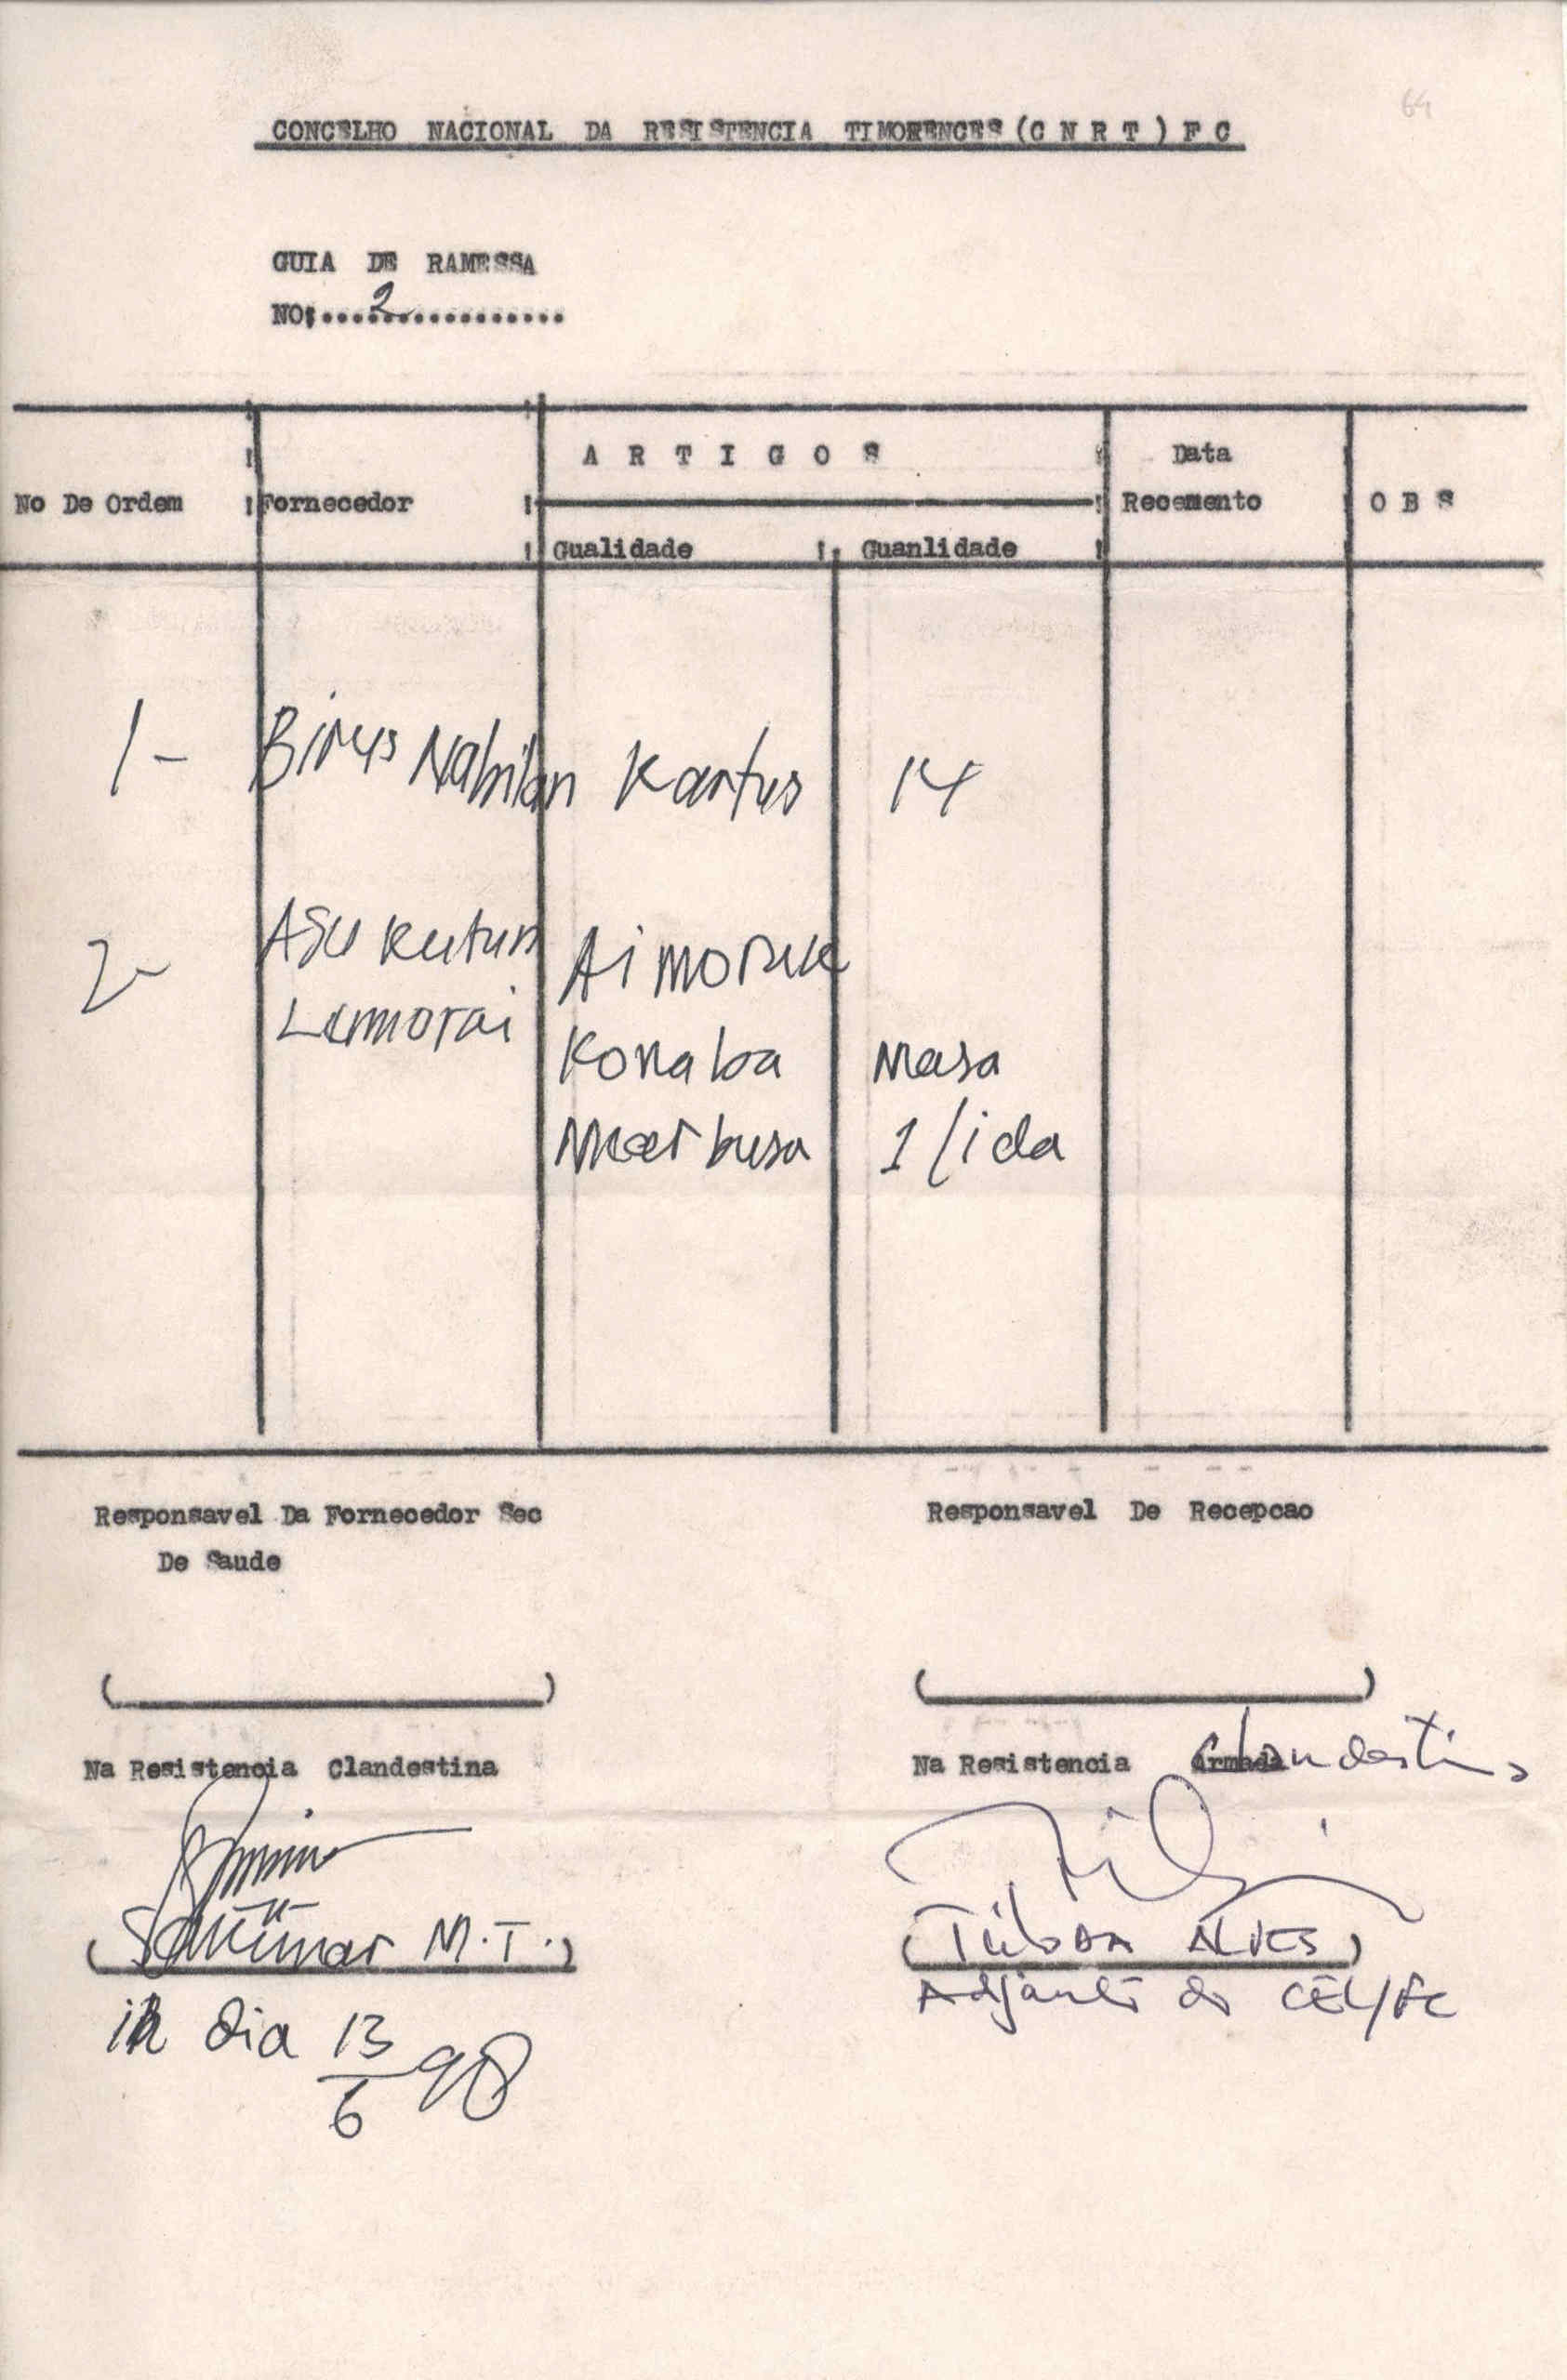 64
CONCELHO NACIONAL DA RESISTENCIA TIMORENCES (C N R T ) F C
GUIA DE RAMESSA
NO:....2............
No De Ordem Fornecedor A R T I G O S Data Recemento O B S
Gualidade Guanlidade
1- Birus Nabilan Kartus 14
2- Asu Kutun Aimoruk
Lamorai Konaba Masa
Marbusa 1/ida
Responsavel Da Fornecedor Sec Responsavel De Recepcao
De Saude
Na Resistencia Clandestina Na Resistencia Armada Clandestina
( M.T.) ( ALVES)
in dia 13/6 98 Adjunto do CEL/FC